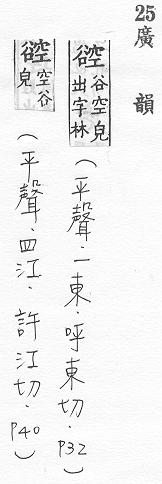 25
廣韻
谾谷空皃出字林
(平聲.一東.呼東切.P32)
谾空谷皃
(平聲.四江.許江切.P40)